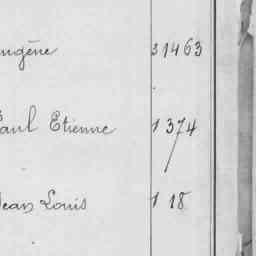 ugène 31463
Paul Etienne 1 374
Jean Louis 1 18